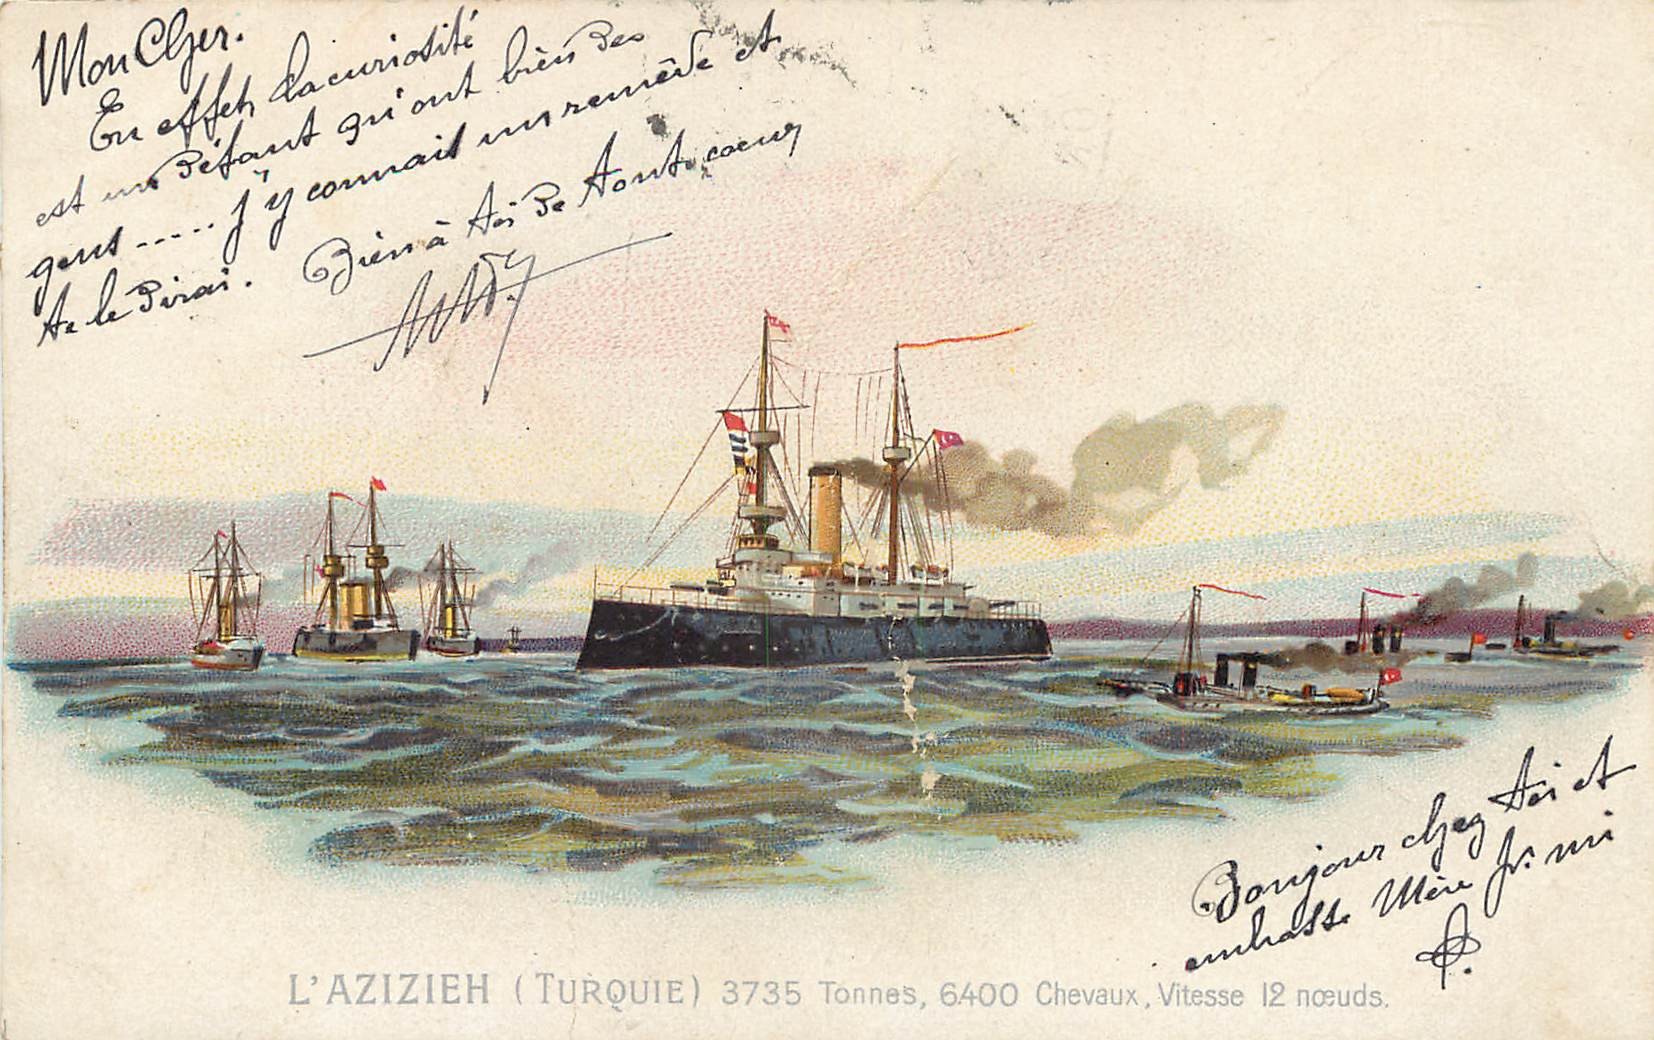 Mon Cher.
En effet la curiosité
est un défaut qu'ont bien des
gens ..... J'y connait un remède et
te le dirai. Bien à toi de tout coeur
Bonjour chez toi et
embrasse Mère pr. mi
L'AZIZIEH (TURQUIE) 3735 Tonnes, 6400 Chevaux, Vitesse 12 nœuds.